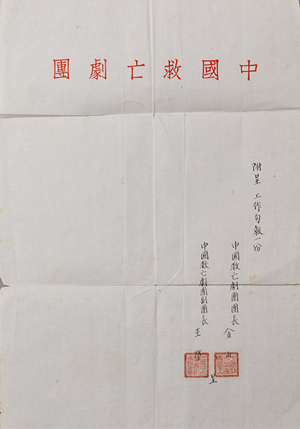 中國救亡劇團
附呈 工作旬報一份
中國救亡劇團團長 金
中國救亡劇團副團長 王
呈